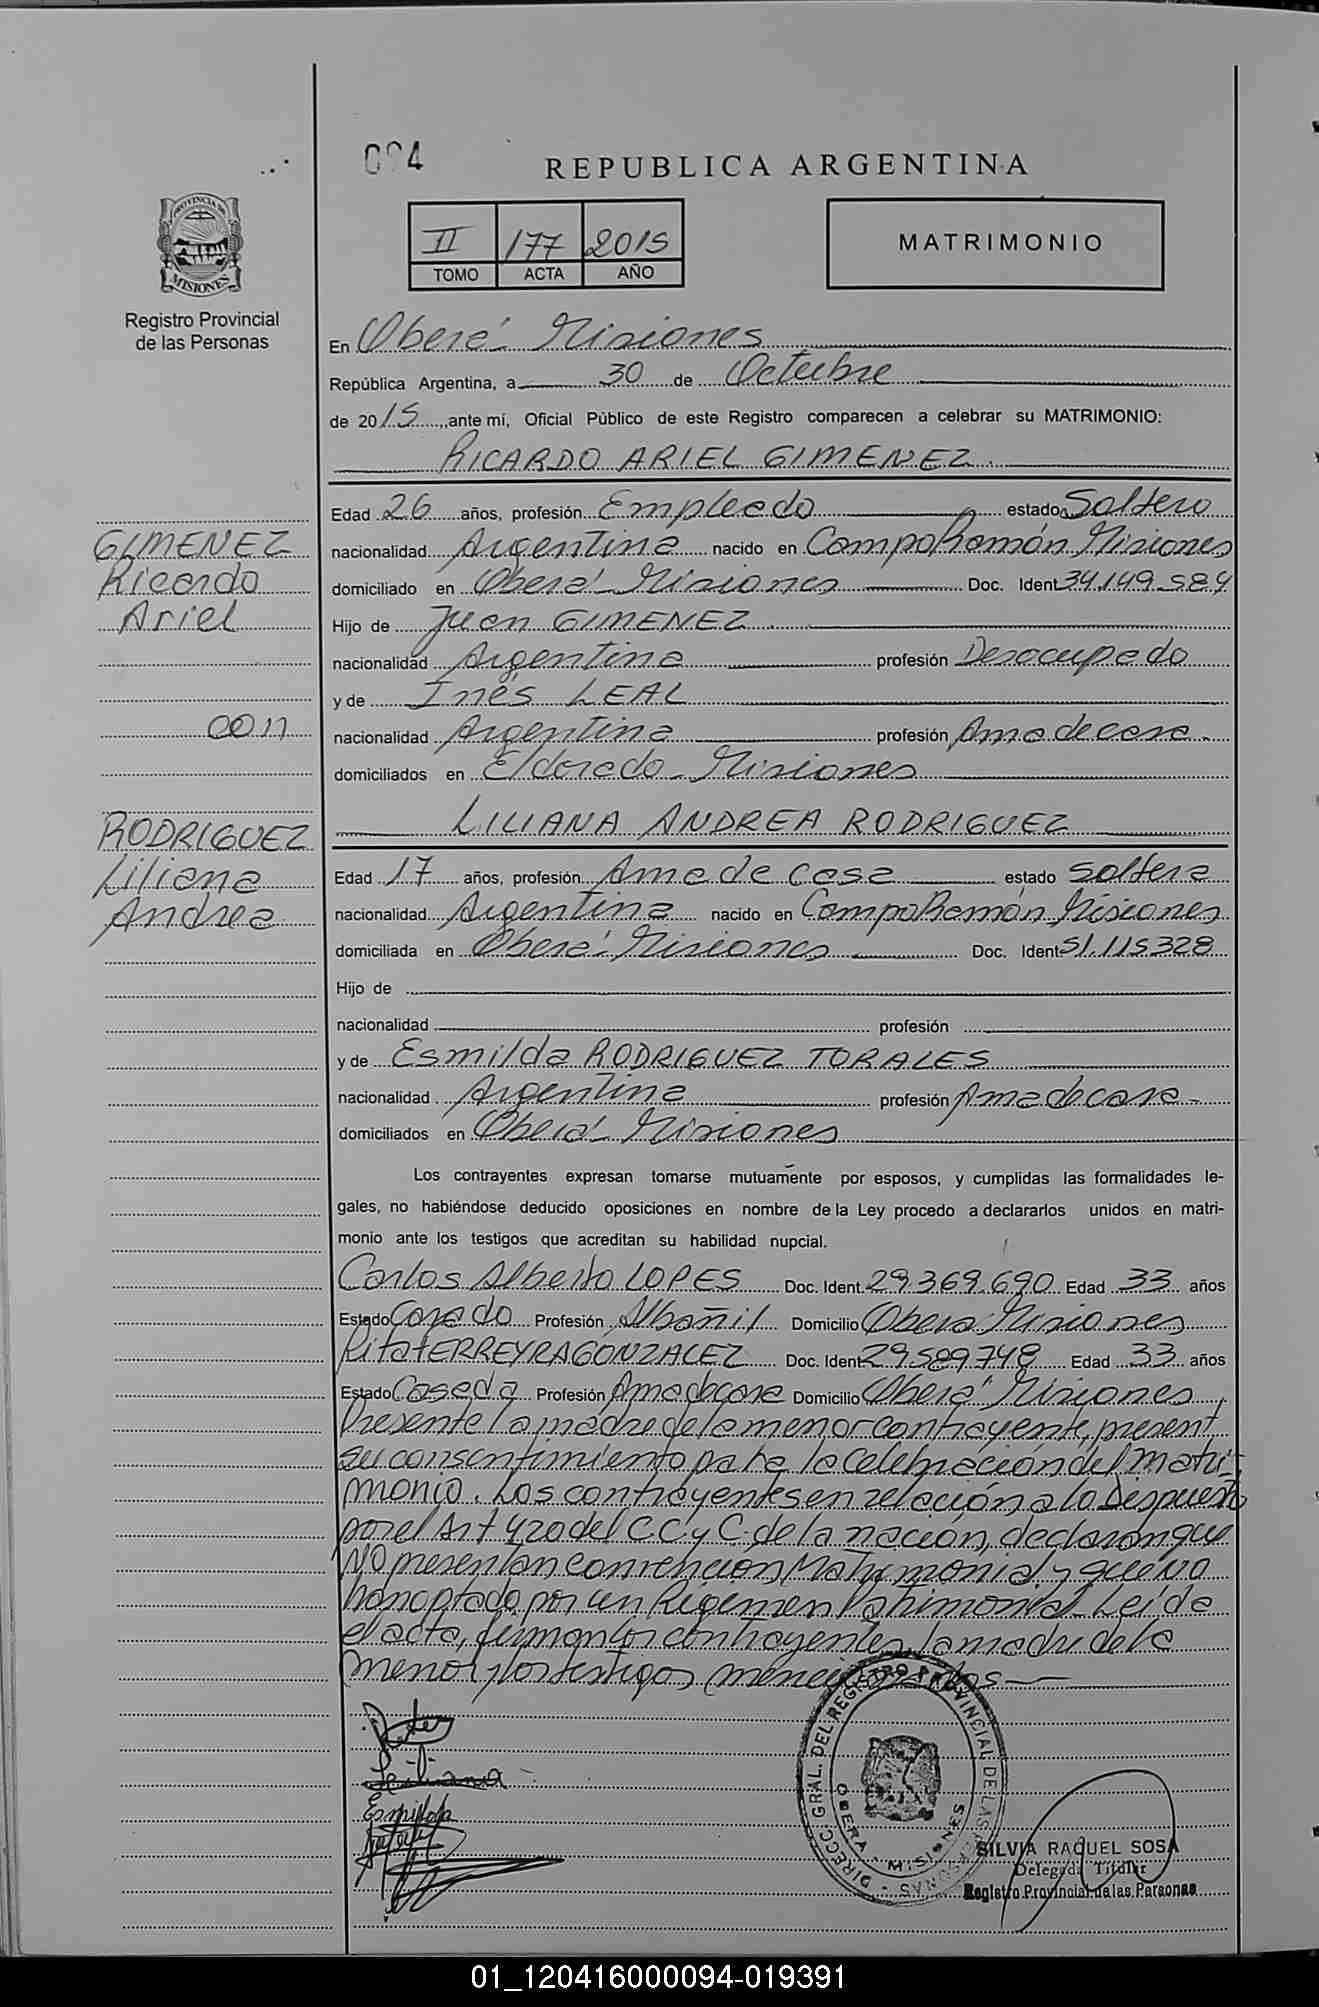 094
REPUBLICA ARGENTINA
PROVINCIA DE
MISIONES
Registro Provincial
de las Personas
II 177 2015
TOMO ACTA AÑO
MATRIMONIO
En Oberá - Misiones
República Argentina, a 30 de Octubre
de 2015, ante mí, Oficial Público de este Registro comparecen a celebrar su MATRIMONIO:
RICARDO ARIEL GIMENEZ.
Edad 26 años, profesión Empleado estado Soltero
GIMENEZ
nacionalidad Argentina nacido en Campo Ramón Misiones
Ricardo
domiciliado en Oberá - Misiones Doc. Ident 34.149.584
Ariel
Hijo de Juan GIMENEZ.
nacionalidad Argentina profesión Desocupado
y de Inés LEAL
con
nacionalidad Argentina profesión Ama de casa.
domiciliados en Eldorado - Misiones
LILIANA ANDREA RODRIGUEZ
RODRIGUEZ
Liliana
Edad 17 años, profesión Ama de casa estado soltera
Andrea
nacionalidad Argentina nacido en Campo Ramón Misiones
domiciliada en Oberá - Misiones Doc. Ident 51.115.328
Hijo de
nacionalidad profesión
y de Esmilda RODRIGUEZ TORALES
nacionalidad Argentina profesión Ama de casa -
domiciliados en Oberá - Misiones
Los contrayentes expresan tomarse mutuamente por esposos, y cumplidas las formalidades le-
gales, no habiéndose deducido oposiciones en nombre de la Ley procedo a declararlos unidos en matri-
monio ante los testigos que acreditan su habilidad nupcial.
Carlos Alberto LOPES Doc. Ident. 29.369.690 Edad 33 años
Estado Casado Profesión Albañil Domicilio Oberá Misiones
Rita FERREYRA GONZALEZ Doc. Ident 29589748 Edad 33 años
Estado Casada Profesión Ama de casa Domicilio Oberá Misiones
Presente la madre de la menor contrayente, present
su consentimiento para la celebración del matri-
monio. Los contrayentes en relación a lo Dispuesto
por el Art 420 del C.C. y C. de la nación, declaran que
NO presentan convención Matrimonial y que NO
han optado por un Régimen Patrimonial. Leída
el acta, firman los contrayentes, la madre de la
menor y los testigos mencionados
Liliana
Esmilda
DIRECC. GRAL. DEL REGISTRO PROVINCIAL DE LAS PERSONAS
OBERA - MISIONES
SILVIA RAQUEL SOSA
Delegada Titular
Registro Provincial de las Personas
01_120416000094-019391